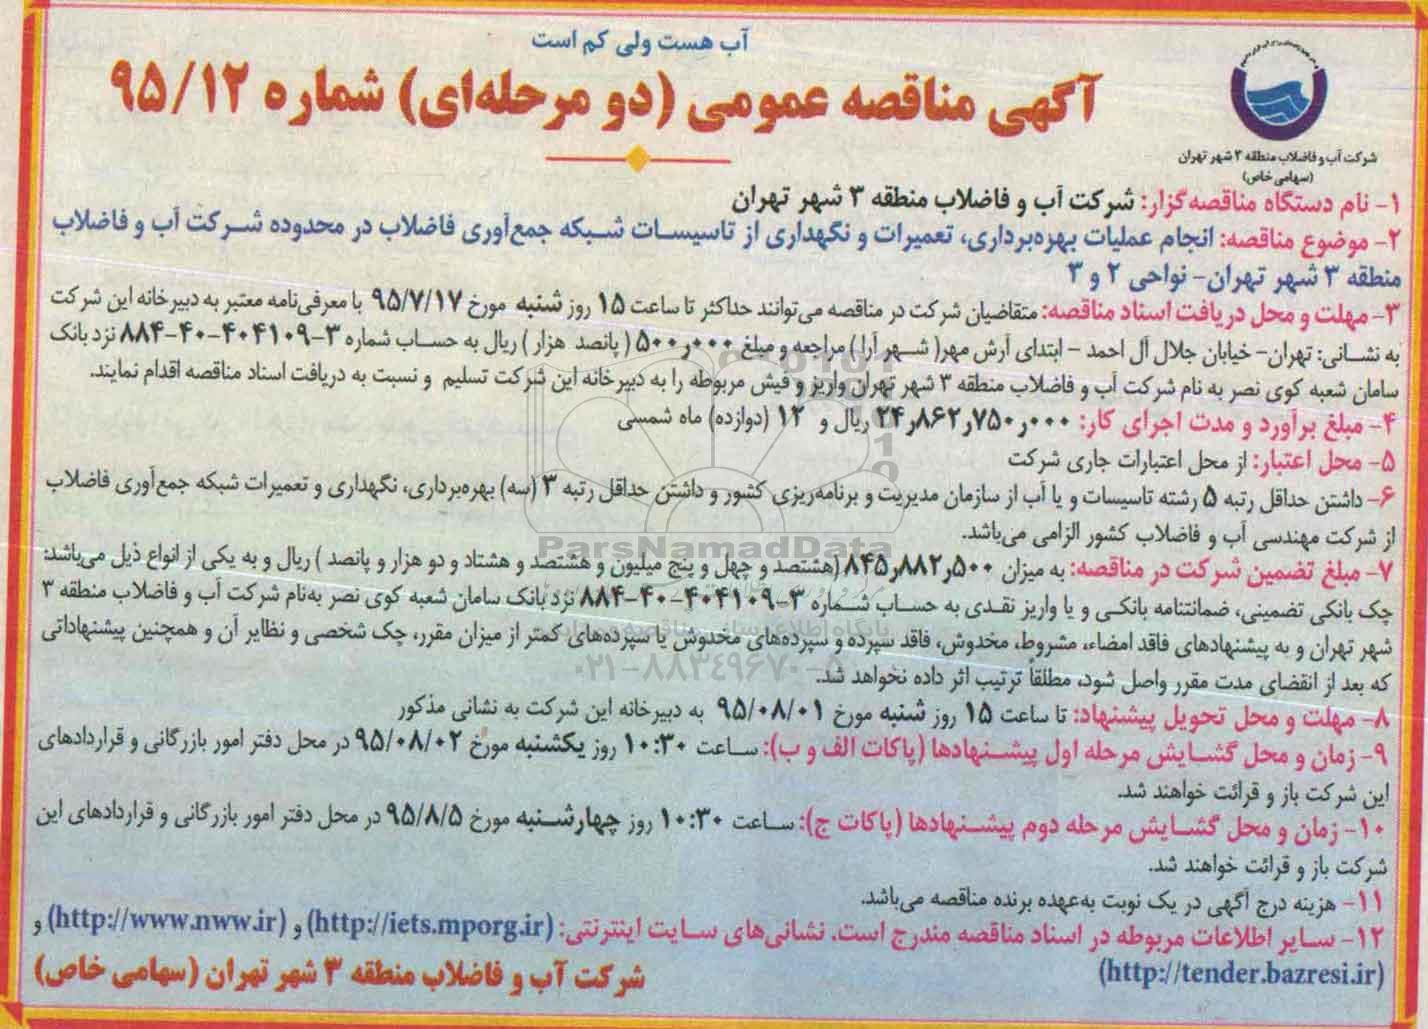 آب هست ولی کم است
آگهی مناقصه عمومی (دو مرحله‌ای) شماره ۹۵/۱۲
شرکت آب و فاضلاب منطقه ۳ شهر تهران
(سهامی خاص)
۱- نام دستگاه مناقصه‌گزار: شرکت آب و فاضلاب منطقه ۳ شهر تهران
۲- موضوع مناقصه: انجام عملیات بهره‌برداری، تعمیرات و نگهداری از تاسیسات شبکه جمع‌آوری فاضلاب در محدوده شرکت آب و فاضلاب
منطقه ۳ شهر تهران- نواحی ۲ و ۳
۳- مهلت و محل دریافت اسناد مناقصه: متقاضیان شرکت در مناقصه می‌توانند حداکثر تا ساعت ۱۵ روز شنبه مورخ ۹۵/۷/۱۷ با معرفی‌نامه معتبر به دبیرخانه این شرکت
به نشانی: تهران- خیابان جلال آل احمد - ابتدای آرش مهر( شهر آرا) مراجعه و مبلغ ۵۰۰ر۰۰۰ ( پانصد هزار ) ریال به حساب شماره ۳-۴۰۴۱۰۹-۴۰-۸۸۴ نزد بانک
سامان شعبه کوی نصر به نام شرکت آب و فاضلاب منطقه ۳ شهر تهران واریز و فیش مربوطه را به دبیرخانه این شرکت تسلیم و نسبت به دریافت اسناد مناقصه اقدام نمایند.
۴- مبلغ برآورد و مدت اجرای کار: ۲۴ر۸۶۲ر۷۵۰ر۰۰۰ ریال و ۱۲ (دوازده) ماه شمسی
۵- محل اعتبار: از محل اعتبارات جاری شرکت
۶- داشتن حداقل رتبه ۵ رشته تاسیسات و یا آب از سازمان مدیریت و برنامه‌ریزی کشور و داشتن حداقل رتبه ۳ (سه) بهره‌برداری، نگهداری و تعمیرات شبکه جمع‌آوری فاضلاب
از شرکت مهندسی آب و فاضلاب کشور الزامی می‌باشد.
ParsNamadData
۷- مبلغ تضمین شرکت در مناقصه: به میزان ۸۴۵ر۸۸۲ر۵۰۰ (هشتصد و چهل و پنج میلیون و هشتصد و هشتاد و دو هزار و پانصد ) ریال و به یکی از انواع ذیل می‌باشد:
چک بانکی تضمینی، ضمانتنامه بانکی و یا واریز نقدی به حساب شماره ۳-۴۰۴۱۰۹-۴۰-۸۸۴ نزد بانک سامان شعبه کوی نصر به‌نام شرکت آب و فاضلاب منطقه ۳
شهر تهران و به پیشنهادهای فاقد امضاء، مشروط، مخدوش، فاقد سپرده و سپرده‌های مخدوش یا سپرده‌های کمتر از میزان مقرر، چک شخصی و نظایر آن و همچنین پیشنهاداتی
که بعد از انقضای مدت مقرر واصل شود، مطلقاً ترتیب اثر داده نخواهد شد.
۰۲۱-۸۸۳۴۹۶۷۰-۵
۸- مهلت و محل تحویل پیشنهاد: تا ساعت ۱۵ روز شنبه مورخ ۹۵/۰۸/۰۱ به دبیرخانه این شرکت به نشانی مذکور
۹- زمان و محل گشایش مرحله اول پیشنهادها (پاکات الف و ب): ساعت ۱۰:۳۰ روز یکشنبه مورخ ۹۵/۰۸/۰۲ در محل دفتر امور بازرگانی و قراردادهای
این شرکت باز و قرائت خواهند شد.
۱۰- زمان و محل گشایش مرحله دوم پیشنهادها (پاکات ج): ساعت ۱۰:۳۰ روز چهارشنبه مورخ ۹۵/۸/۵ در محل دفتر امور بازرگانی و قراردادهای این
شرکت باز و قرائت خواهند شد.
۱۱- هزینه درج آگهی در یک نوبت به‌عهده برنده مناقصه می‌باشد.
۱۲- سایر اطلاعات مربوطه در اسناد مناقصه مندرج است. نشانی‌های سایت اینترنتی: (http://iets.mporg.ir) و (http://www.nww.ir) و
(http://tender.bazresi.ir)
شرکت آب و فاضلاب منطقه ۳ شهر تهران (سهامی خاص)